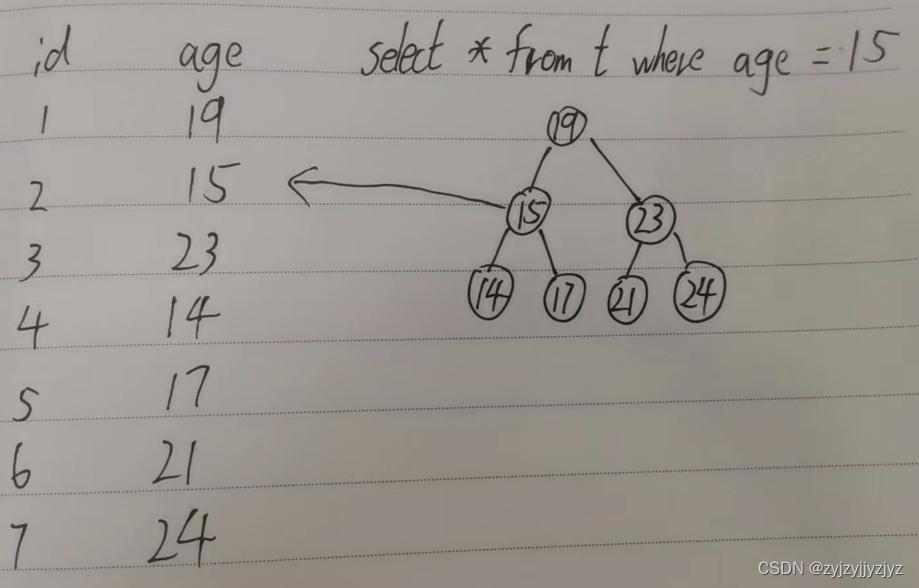 id age select * from t where age = 15
1 19
2 15
3 23
4 14
5 17
6 21
7 24
19
15 23
14 17 21 24
CSDN @zyjzyjjyzjyz